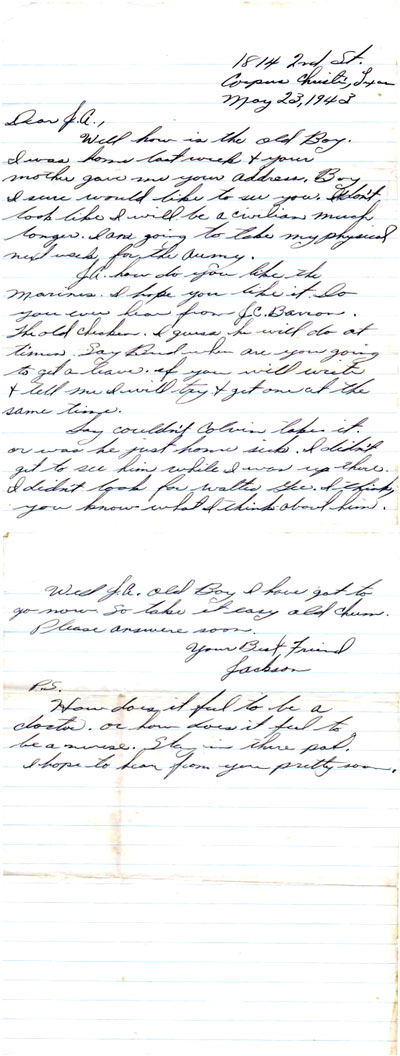 1814 2nd St.
Corpus Christi, Texas
May 23, 1943
Dear J.A.,
Well how is the old Boy.
I was home last week & your
mother gave me your address. Boy
I sure would like to see you. It don't
look like I will be a civilian much
longer. I am going to take my physical
next week for the Army.
J.A. how do you like the
Marines. I hope you like it. Do
you ever hear from J.C. Barron.
The old chicken. I guess he will do at
times. Say Bud when are you going
to get a leave. if you will write
& tell me I will try & get one at the
same time.
Say couldn't Colvin take it.
or was he just home sick. I didn't
get to see him while I was up there.
I didn't look for Walter Gee. I think,
you know what I think about him.
Well J.A. old Boy I have got to
go now. So take it easy old chum.
Please answere soon.
Your Best Friend
Jackson
P.S.
How does it feel to be a
doctor. or how does it feel to
be a nurse. Stay in there pal.
I hope to hear from you pretty soon.